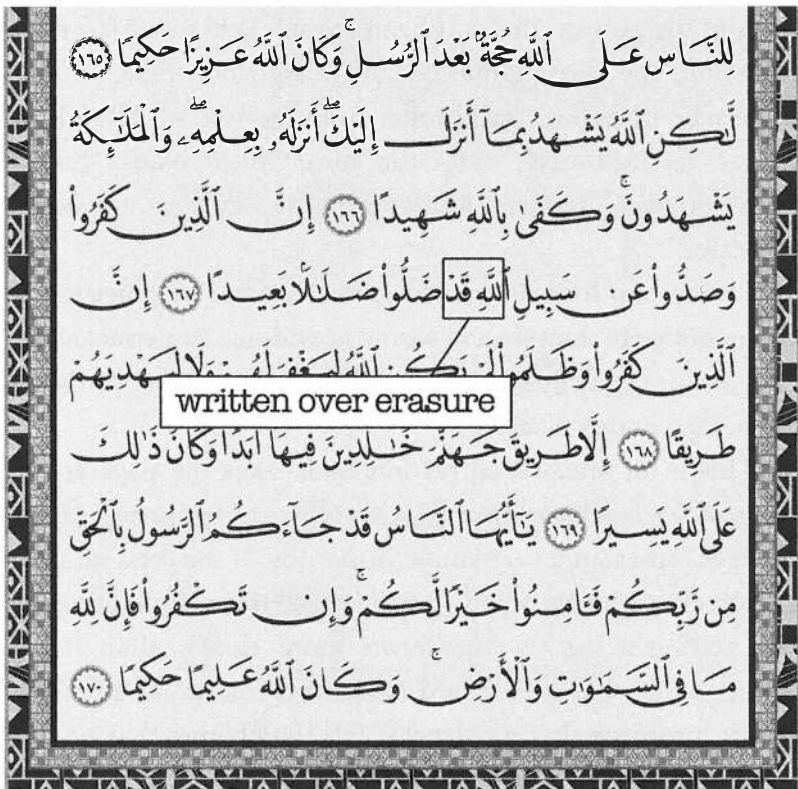 لِلنَّاسِ عَلَى ٱللَّهِ حُجَّةٌۢ بَعْدَ ٱلرُّسُلِ ۚ وَكَانَ ٱللَّهُ عَزِيزًا حَكِيمًا ١٦٥
لَّٰكِنِ ٱللَّهُ يَشْهَدُ بِمَآ أَنزَلَ إِلَيْكَ ۖ أَنزَلَهُۥ بِعِلْمِهِۦ ۖ وَٱلْمَلَٰٓئِكَةُ
يَشْهَدُونَ ۚ وَكَفَىٰ بِٱللَّهِ شَهِيدًا ١٦٦ إِنَّ ٱلَّذِينَ كَفَرُوا۟
وَصَدُّوا۟ عَن سَبِيلِ ٱللَّهِ قَدْ ضَلُّوا۟ ضَلَٰلًۢا بَعِيدًا ١٦٧ إِنَّ
ٱلَّذِينَ كَفَرُوا۟ وَظَلَمُوا۟ لَمْ يَكُنِ ٱللَّهُ لِيَغْفِرَ لَهُمْ وَلَا لِيَهْدِيَهُمْ
written over erasure
طَرِيقًا ١٦٨ إِلَّا طَرِيقَ جَهَنَّمَ خَٰلِدِينَ فِيهَآ أَبَدًا ۚ وَكَانَ ذَٰلِكَ
عَلَى ٱللَّهِ يَسِيرًا ١٦٩ يَٰٓأَيُّهَا ٱلنَّاسُ قَدْ جَآءَكُمُ ٱلرَّسُولُ بِٱلْحَقِّ
مِن رَّبِّكُمْ فَـَٔامِنُوا۟ خَيْرًا لَّكُمْ ۚ وَإِن تَكْفُرُوا۟ فَإِنَّ لِلَّهِ
مَا فِى ٱلسَّمَٰوَٰتِ وَٱلْأَرْضِ ۚ وَكَانَ ٱللَّهُ عَلِيمًا حَكِيمًا ١٧٠